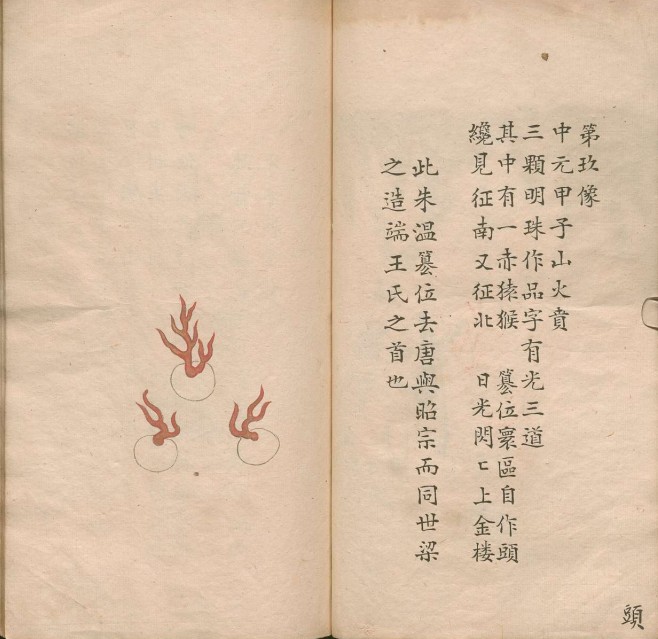 第玖像
中元甲子山火賁
三顆明珠作品字有光三道
其中有一赤猿猴 篡位寰區自作頭
纔見征南又征北 日光閃〻上金楼
此朱温篡位去唐與昭宗而同世梁
之造端王氏之首也
頭